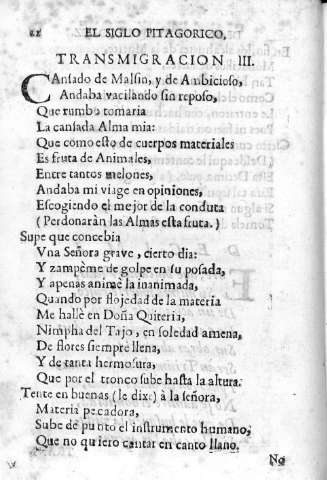 22 EL SIGLO PITAGORICO,
TRANSMIGRACION III.
CAnsado de Malsin, y de Ambicioso,
Andaba vacilando sin reposo,
Que rumbo tomaria
La cansada Alma mia:
Que como esto de cuerpos materiales
Es fruta de Animales,
Entre tantos melones,
Andaba mi viage en opiniones,
Escogiendo el mejor de la conduta
(Perdonaràn las Almas esta fruta.)
Supe que concebia
Vna Señora grave, cierto dia:
Y zampème de golpe en su posada,
Y apenas animè la inanimada,
Quando por flojedad de la materia
Me hallè en Doña Quiteria,
Nimpha del Tajo, en soledad amena,
De flores siempre llena,
Y de tanta hermosura,
Que por el tronco sube hasta la altura.
Tente en buenas (le dixe) à la señora,
Materia pecadora,
Sube de punto el instrumento humano,
Que no quiero cantar en canto llano.
No